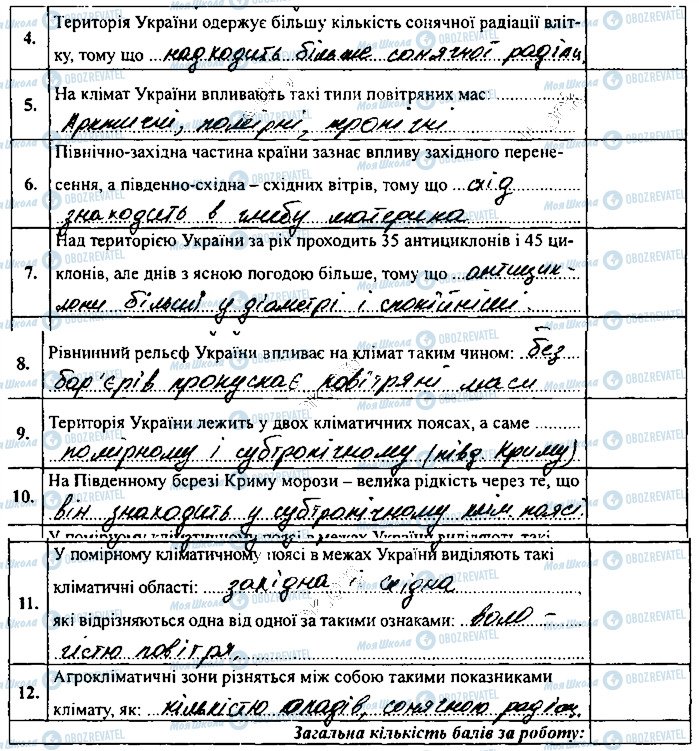 4. Територія України одержує більшу кількість сонячної радіації вліт-
ку, тому що надходить більше сонячної радіац.
5. На клімат України впливають такі типи повітряних мас:
Арктичні, помірні, тропічні
6. Північно-західна частина країни зазнає впливу західного перене-
сення, а південно-східна – східних вітрів, тому що схід
знаходить в глибу материка
7. Над територією України за рік проходить 35 антициклонів і 45 ци-
клонів, але днів з ясною погодою більше, тому що антицик-
лони більші у діаметрі і спокійніші.
8. Рівнинний рельєф України впливає на клімат таким чином: без
бар'єрів пропускає повітряні маси
9. Територія України лежить у двох кліматичних поясах, а саме
помірному і субтропічному (півд. Криму)
10. На Південному березі Криму морози – велика рідкість через те, що
він знаходить у субтропічному клім. поясі
У помірному кліматичному поясі в межах України виділяють такі
11. У помірному кліматичному поясі в межах України виділяють такі
кліматичні області: західна і східна
які відрізняються одна від одної за такими ознаками: воло-
гістю повітря
12. Агрокліматичні зони різняться між собою такими показниками
клімату, як: кількістю опадів, сонячною радіац.
Загальна кількість балів за роботу:
Моя Школа OBOZREVATEL